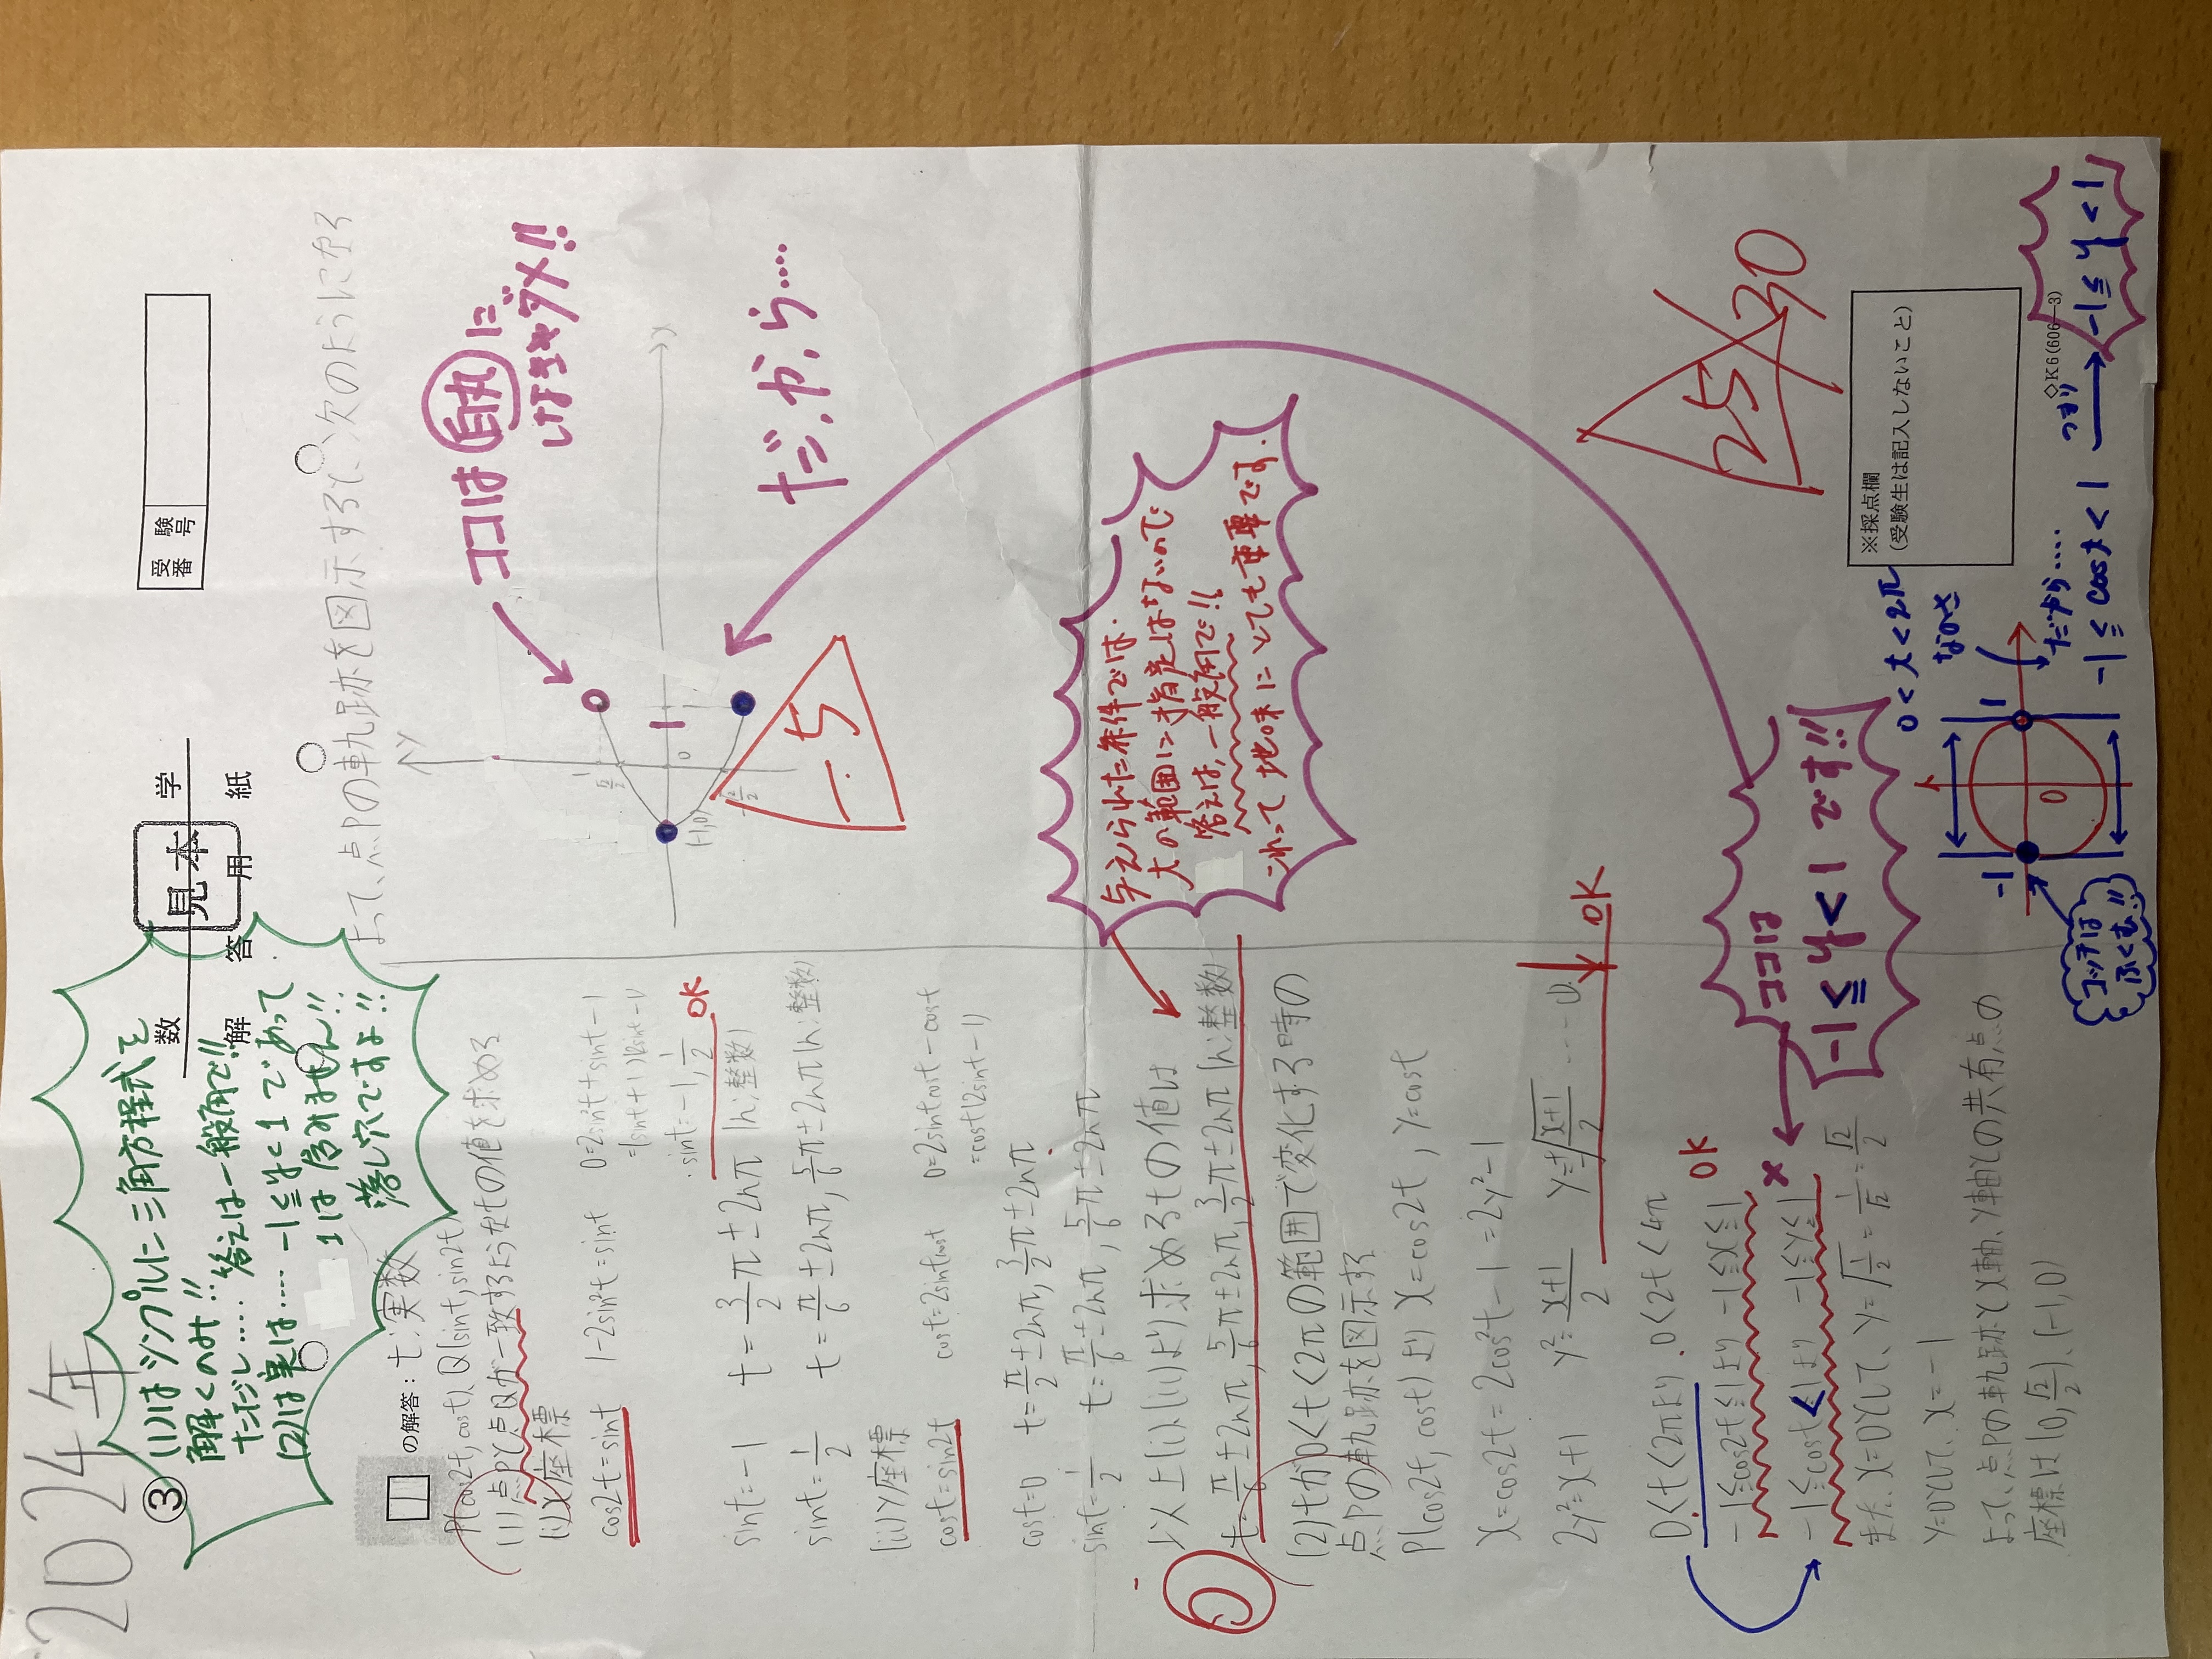 2024年
③
(1)はシンプルに三角方程式を
解くのみ!!
ただし....答えは一般角で!!
(2)は実は.... -1≦y<1であって
1は含みません!!
落し穴ですよ!!
見本
数 学
解 答 用 紙
受験
番号
の解答: t:実数
P(cos2t, cost), Q(sint, sin2t)
(1)点Pと点Qが一致するようなtの値を求める
(i)X座標
cos2t=sint 1-2sin²t=sint 0=2sin²t+sint-1
=(sint+1)(2sint-1)
sint=-1, 1/2 OK
sint=-1 t=3/2π±2nπ (n:整数)
sint=1/2 t=π/6±2nπ, 5/6π±2nπ (n:整数)
(ii)Y座標
cost=sin2t cost=2sintcost 0=2sintcost-cost
=cost(2sint-1)
cost=0 t=π/2±2nπ, 3/2π±2nπ
sint=1/2 t=π/6±2nπ, 5/6π±2nπ
以上(i)、(ii)より求めるtの値は
t=π/6±2nπ, 5/6π±2nπ, 3/2π±2nπ (n:整数)
与えられた条件では、
tの範囲に指定はないので
答えは、一般角で!!
これって地味にとても重要です.
(2)tが0<t<2πの範囲で変化する時の
点Pの軌跡を図示する
P(cos2t, cost)より X=cos2t, Y=cost
X=cos2t=2cos²t-1=2y²-1
2y²=X+1 y²=X+1/2 y=±√X+1/2 ....① OK
0<t<2πより、0<2t<4π
-1≦cos2t≦1より -1≦X≦1 OK
-1≦cost<1より -1≦Y≦1 ×
ココは
-1≦y<1です!!
また、X=0として、Y=√1/2=1/√2=√2/2
Y=0として、X=-1
よって、点Pの軌跡とX軸、Y軸との共有点の
座標は(0, √2/2)、(-1,0)
よって、点Pの軌跡を図示すると、次のようになる
ココは白丸に
しなきゃダメ!!
だから....
Y
X
1
√2/2
0
1
(-1,0)
-√2/2
-5
25/30
※採点欄
(受験生は記入しないこと)
◇K6(606—3)
0<t<2π
なので
-1
1
0
コッチは
ふくむ!!
だから....
-1≦cost<1
つまり
-1≦y<1